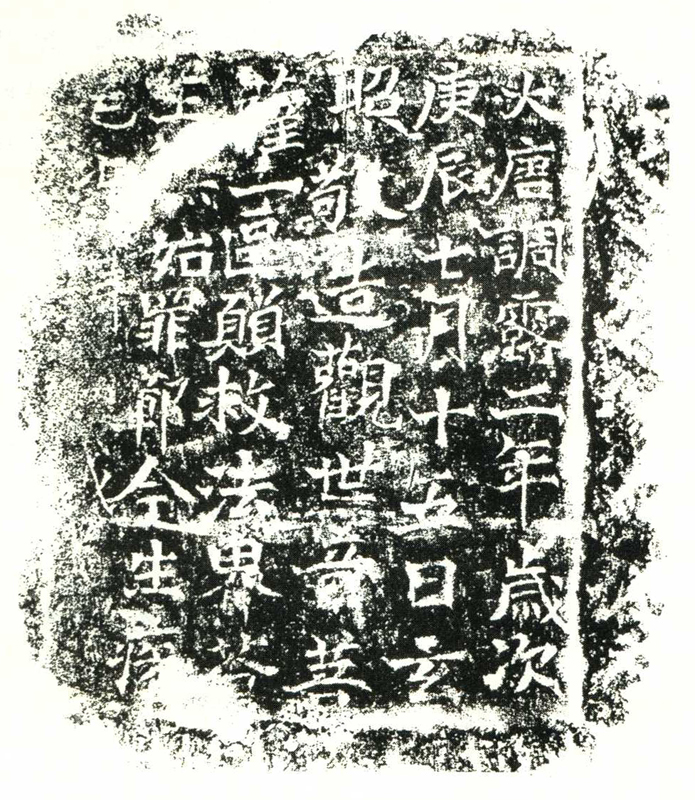 大唐調露二年歲次
庚辰七月十五日玄
照敬造觀世音菩
薩一區願救法界蒼
生始罪鄣今生疾